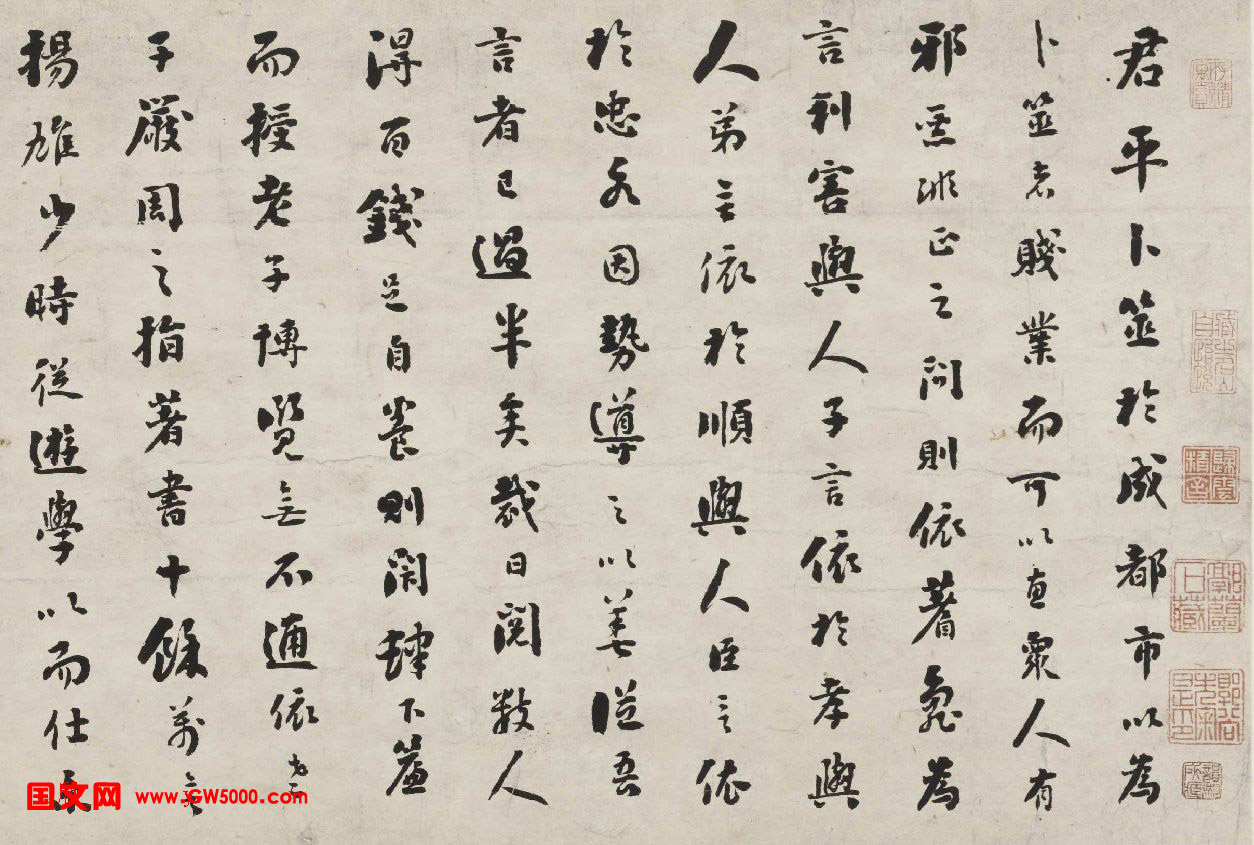 君平卜筮於成都市以為
卜筮者賤業而可以惠衆人有
邪惡非正之問則依蓍龜為
言利害與人子言依於孝與
人弟言依於順與人臣言依
於忠各因勢導之以善從吾
言者已過半矣裁日閱數人
得百錢足自養則閉肆下簾
而授老子博覽無不通依老
子嚴周之指著書十餘萬言
揚雄少時從遊學以而仕京
国文网 www.GW5000.com